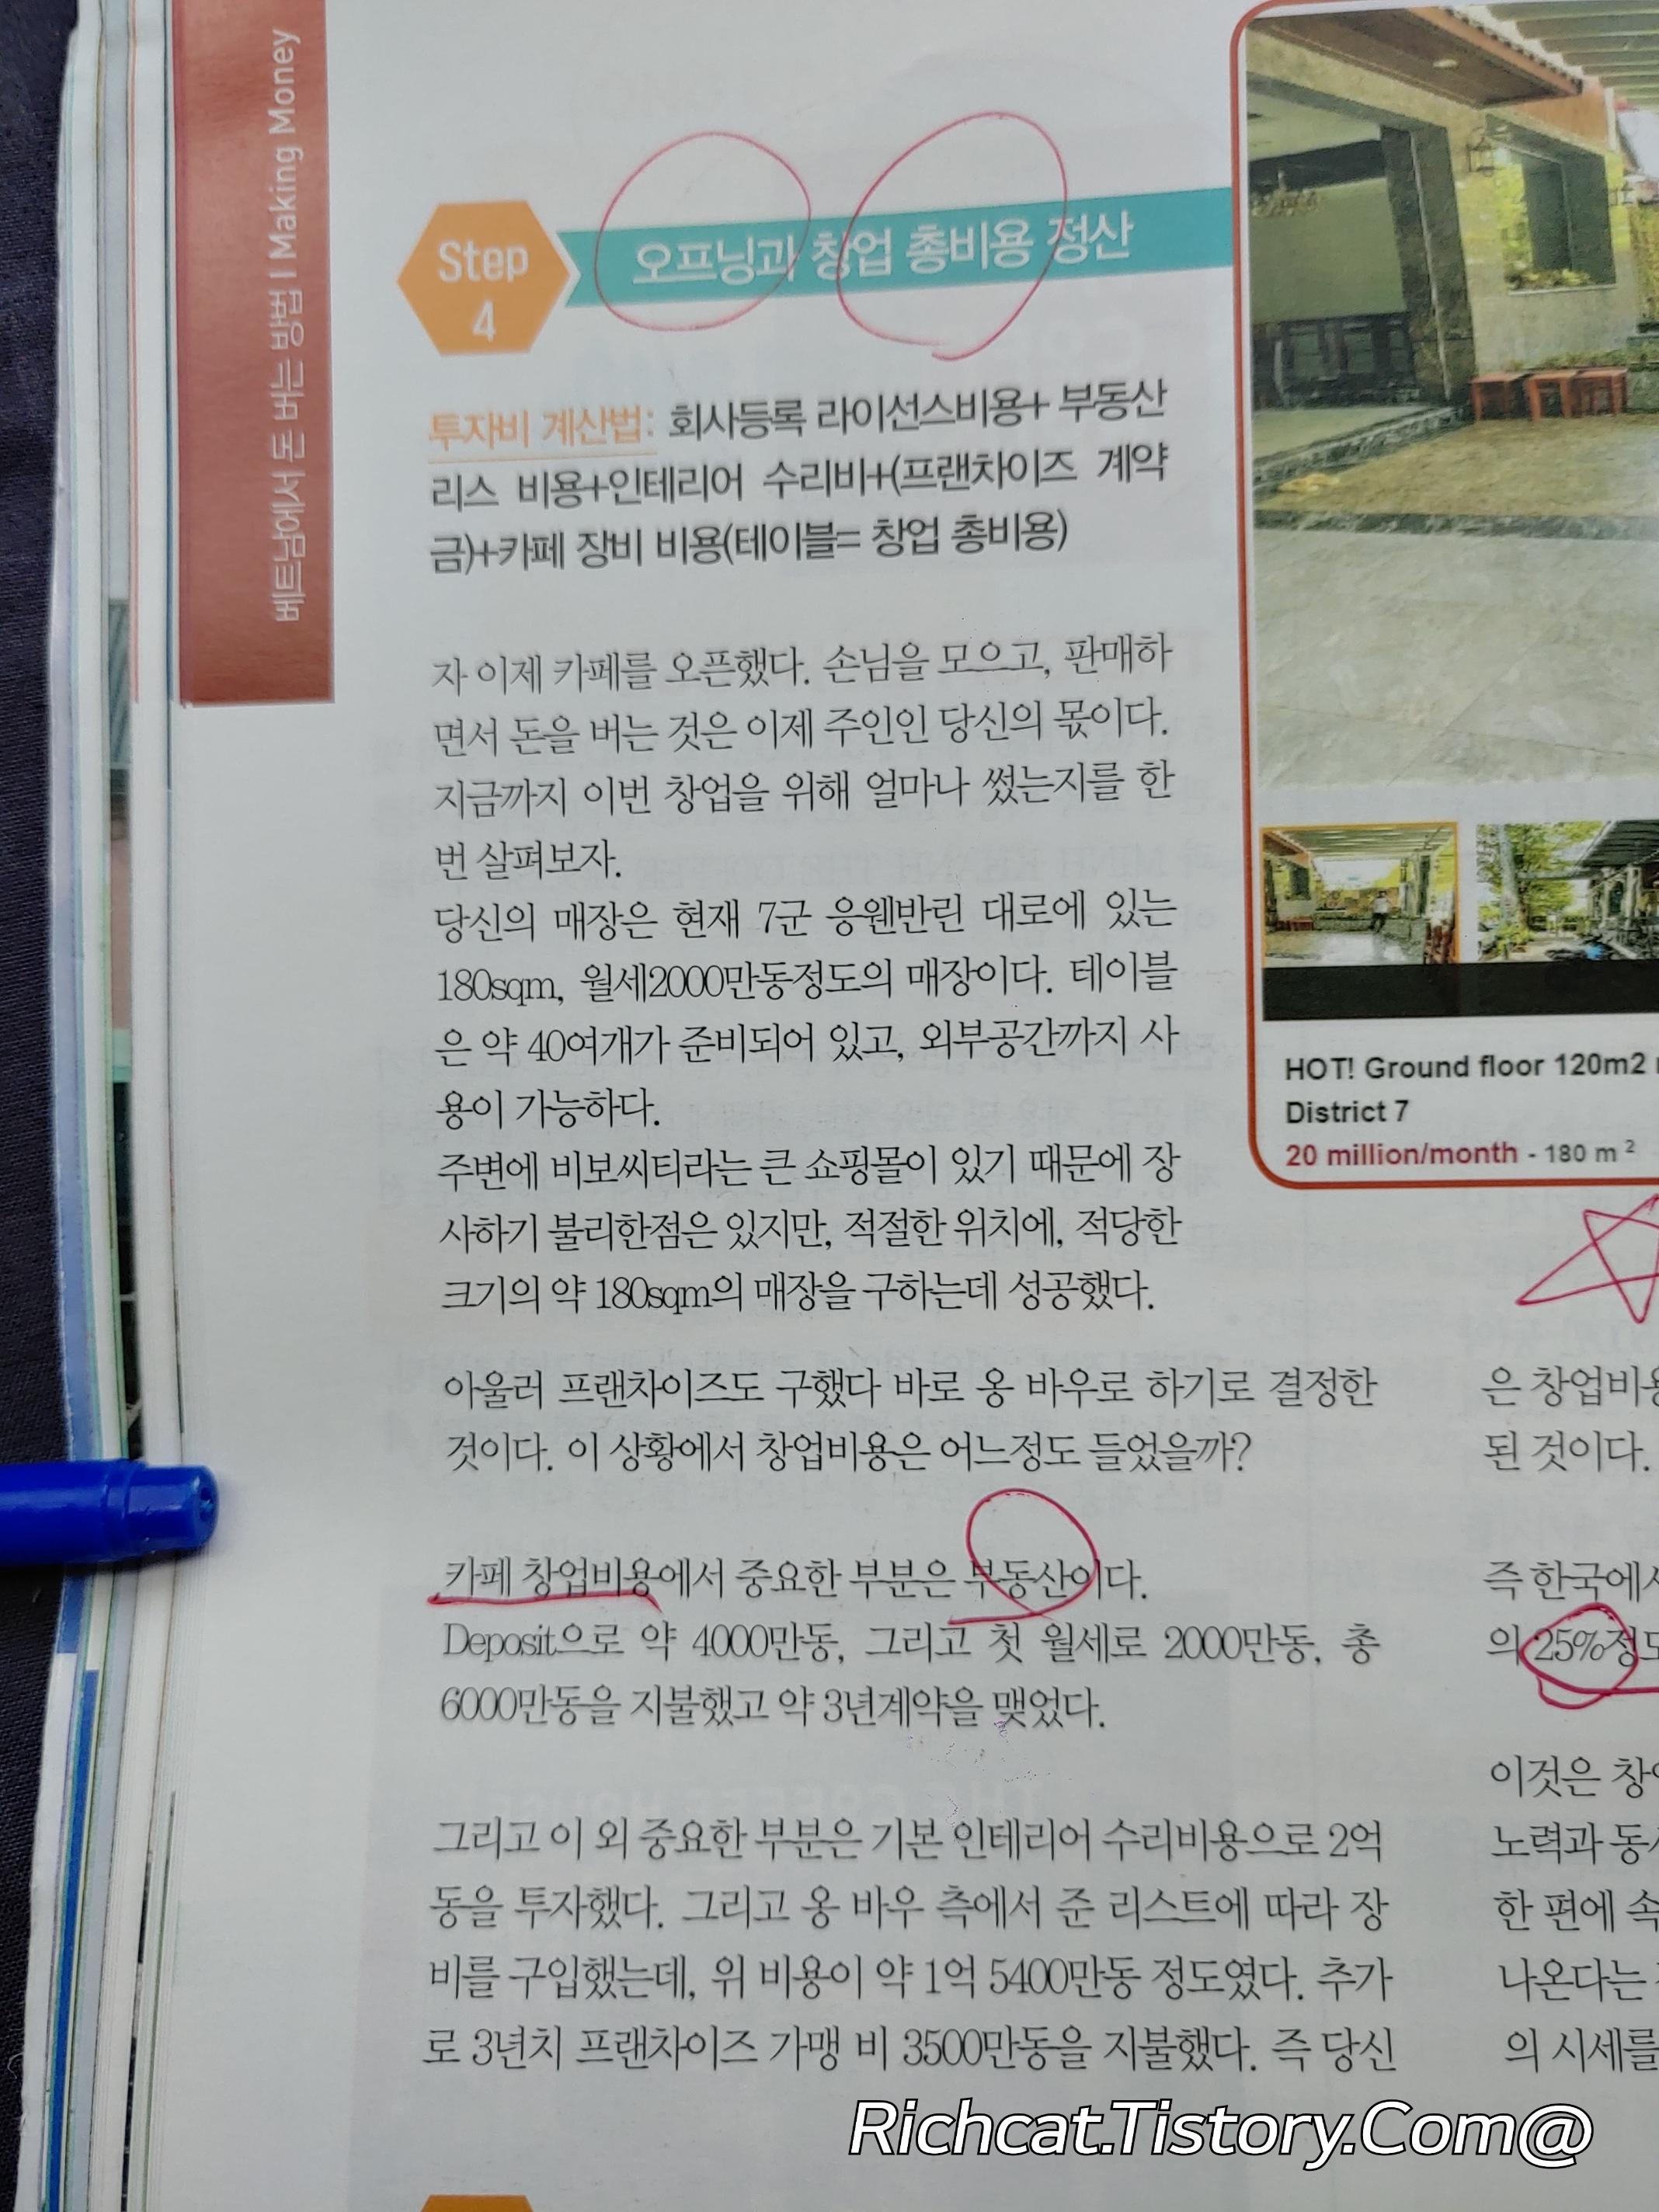 베트남에서 돈 버는 방법 I Making Money
Step
4
오프닝과 창업 총비용 정산
투자비 계산법: 회사등록 라이선스비용+ 부동산
리스 비용+인테리어 수리비+(프랜차이즈 계약
금)+카페 장비 비용(테이블= 창업 총비용)
자 이제 카페를 오픈했다. 손님을 모으고, 판매하
면서 돈을 버는 것은 이제 주인인 당신의 몫이다.
지금까지 이번 창업을 위해 얼마나 썼는지를 한
번 살펴보자.
당신의 매장은 현재 7군 응웬반린 대로에 있는
180sqm, 월세2000만동정도의 매장이다. 테이블
은 약 40여개가 준비되어 있고, 외부공간까지 사
용이 가능하다.
주변에 비보씨티라는 큰 쇼핑몰이 있기 때문에 장
사하기 불리한점은 있지만, 적절한 위치에, 적당한
크기의 약 180sqm의 매장을 구하는데 성공했다.
아울러 프랜차이즈도 구했다 바로 옹 바우로 하기로 결정한
것이다. 이 상황에서 창업비용은 어느정도 들었을까?
카페 창업비용에서 중요한 부분은 부동산이다.
Deposit으로 약 4000만동, 그리고 첫 월세로 2000만동, 총
6000만동을 지불했고 약 3년계약을 맺었다.
그리고 이 외 중요한 부분은 기본 인테리어 수리비용으로 2억
동을 투자했다. 그리고 옹 바우 측에서 준 리스트에 따라 장
비를 구입했는데, 위 비용이 약 1억 5400만동 정도였다. 추가
로 3년치 프랜차이즈 가맹 비 3500만동을 지불했다. 즉 당신
HOT! Ground floor 120m2
District 7
20 million/month - 180 m²
은 창업비용
된 것이다.
즉 한국에서
의 25%정도
이것은 창업
노력과 동시
한 편에 속
나온다는
의 시세를
Richcat.Tistory.Com@